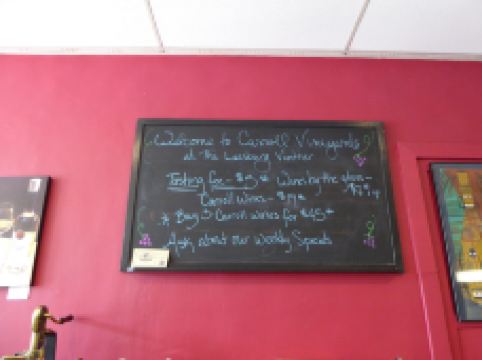 Welcome to Carroll Vineyards
at The Leesburg Vintner
Tasting Fee - $5 Wines by the glass -
Carroll Wines -
* Buy 3 Carroll wines for $45 *
Ask about our Weekly Specials